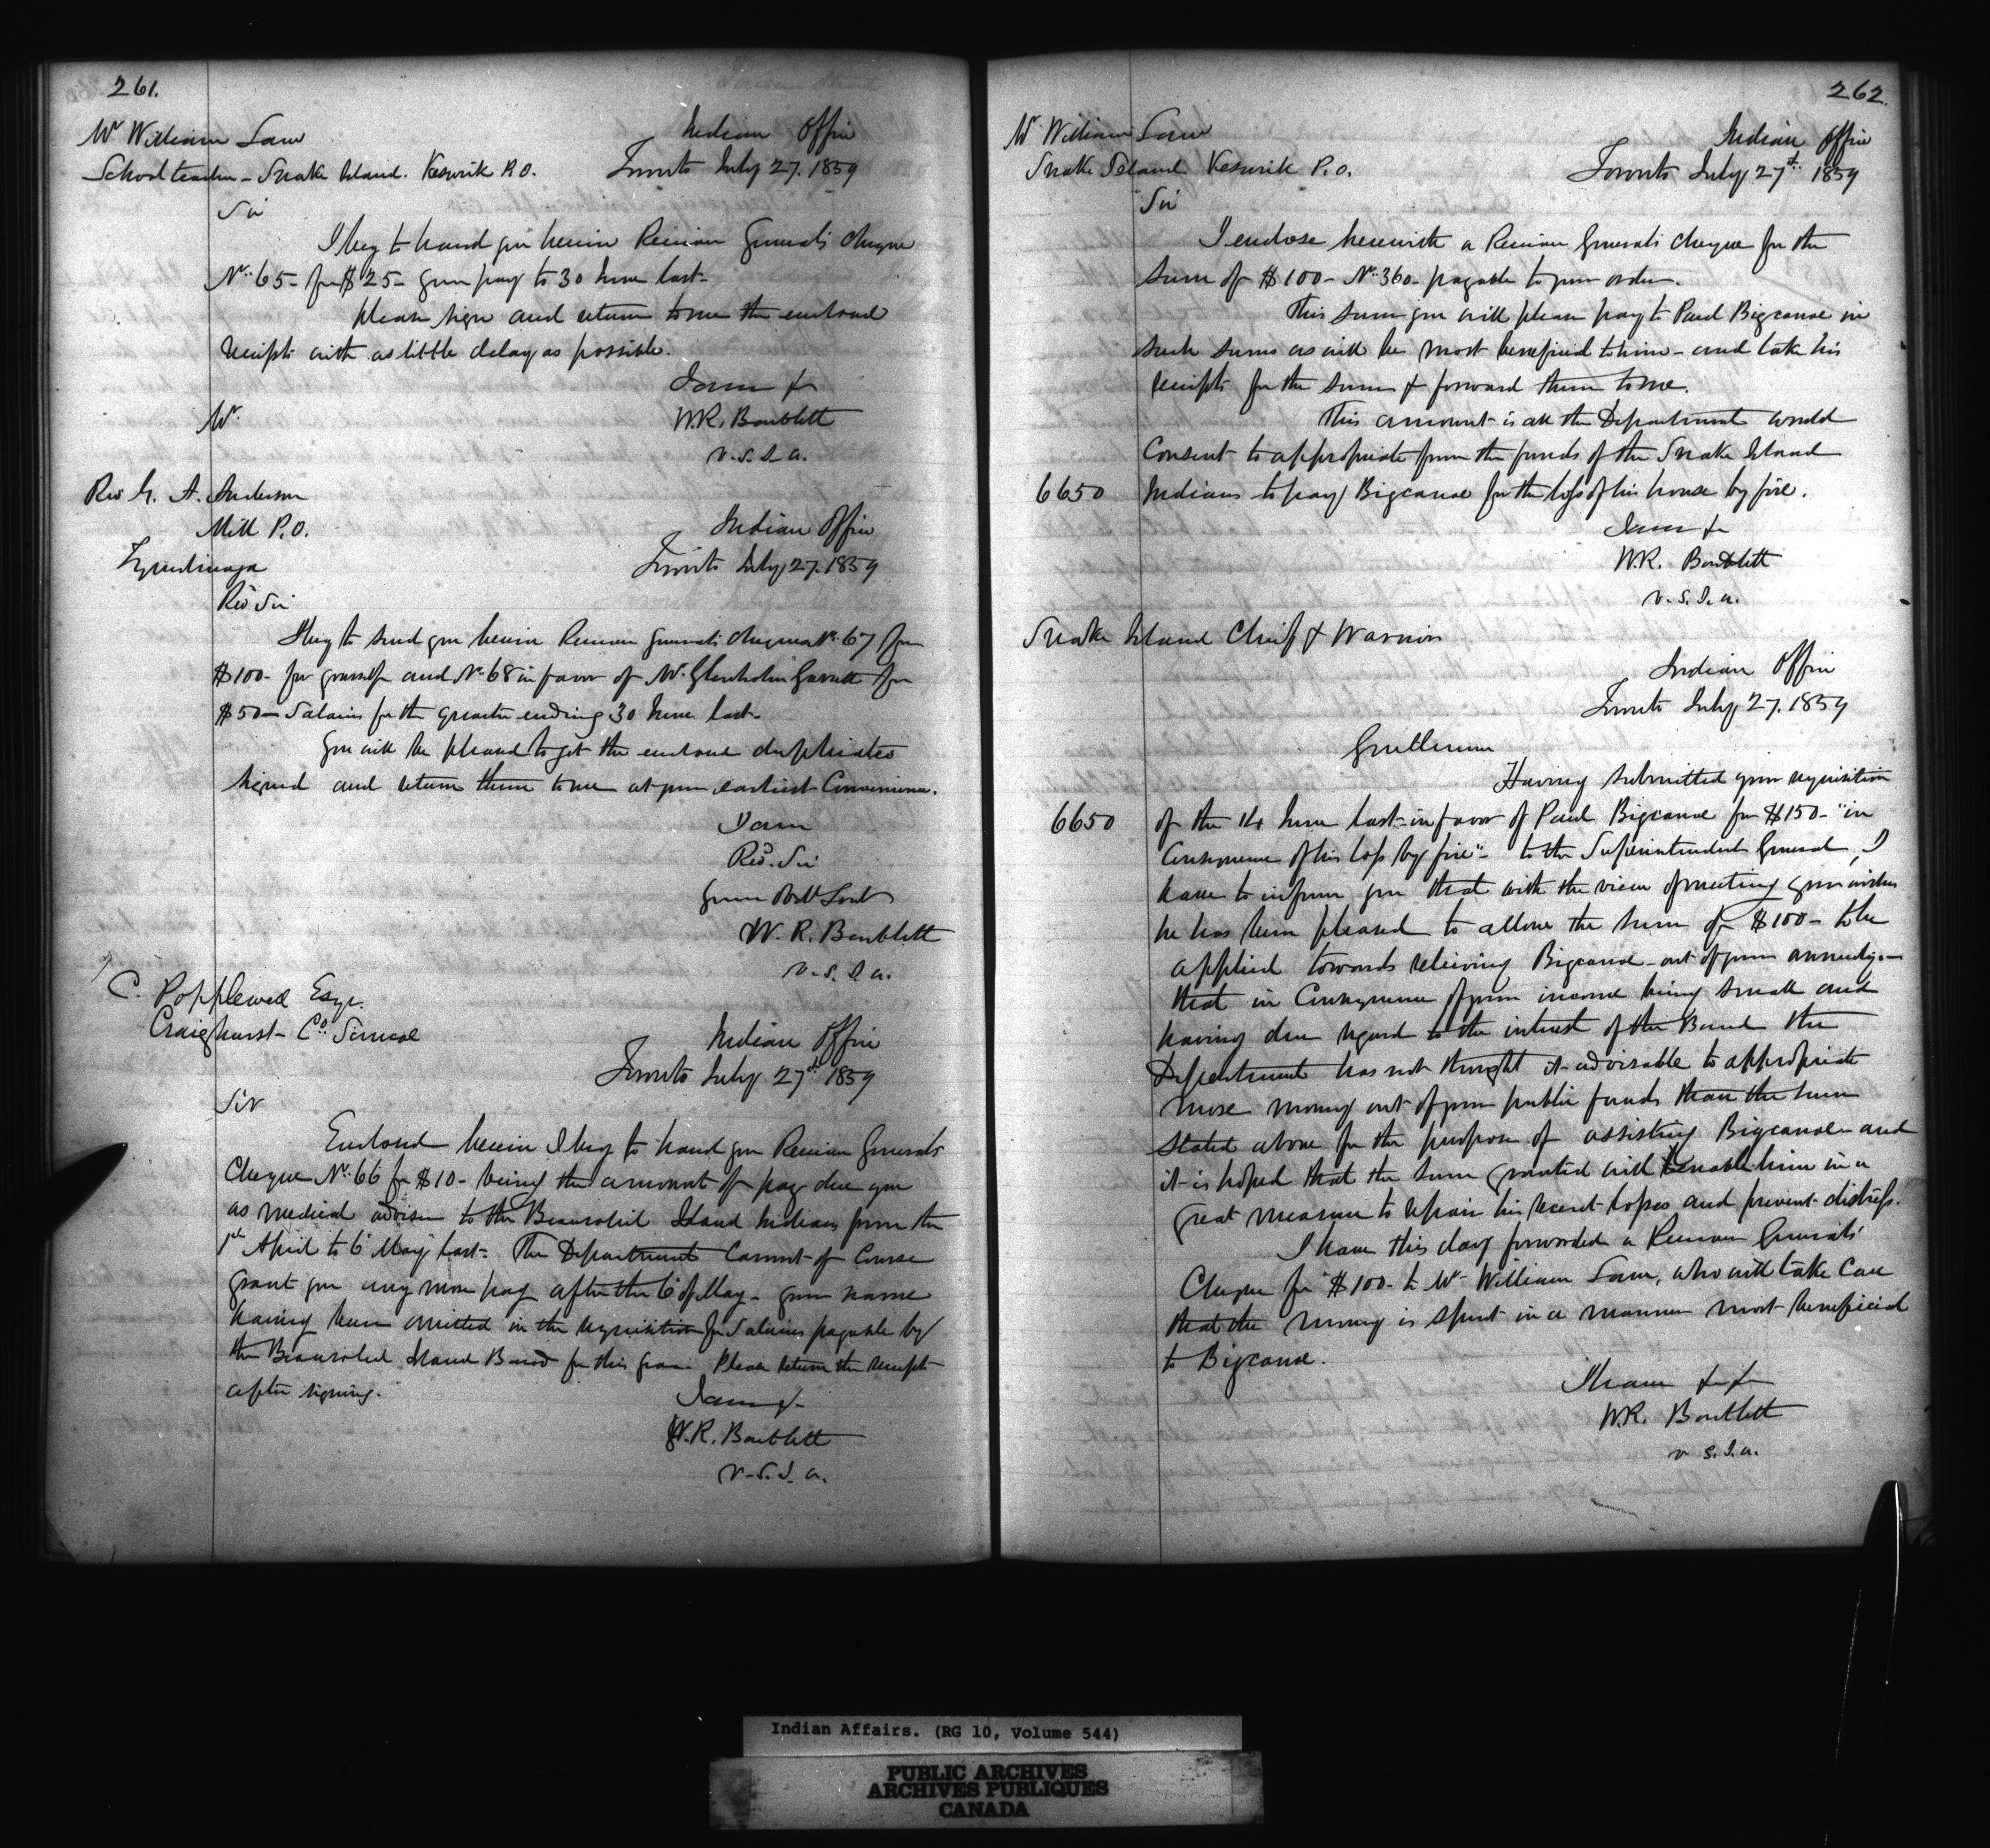 261.
Mr William Law
Schoolteacher - Snake Island. Keswick P.O.
Indian Office
Toronto July 27. 1859
Sir
I beg to hand you herein Receiver General's cheque
No. 65 - for $25 - your pay to 30 June last -
please sign and return to me the enclosed
receipts with as little delay as possible.
I am &c
W.R. Bartlett
V.S.I.A.
Mr.
Rev G. A. Anderson
Mill P.O.
Tyendinaga
Indian Office
Toronto July 27. 1859
Rev Sir
I beg to send you herein Receiver General's cheques No. 67 for
$100 - for yourself and No 68 in favor of Mr. Glenholm Garrett for
$50 - Salaries for the quarter ending 30 June last -
You will be pleased to get the enclosed duplicates
signed and return them to me at your earliest Convenience.
I am
Revd. Sir
Your Obdt Servt
W. R. Bartlett
V.S.I.A.
C. Popplewell Esqr.
Craighurst - Co. Simcoe
Indian Office
Toronto July 27th 1859
Sir
Enclosed herein I beg to hand you Receiver General's
Cheque No. 66 for $10 - being the amount of pay due you
as medical adviser to the Beausoleil Island Indians from the
1st April to 6 May last - The Department cannot of Course
grant you any more pay after the 6 of May - your name
having been omitted in the requisition for Salaries payable by
the Beausoleil Island Band for this year. Please return the receipt
after signing.
I am &
W.R. Bartlett
V.S.I.A.
262.
Mr. William Law
Snake Island Keswick P.O.
Indian Office
Toronto July 27th 1859
Sir
I enclose herewith a Receiver General's cheque for the
sum of $100 - No. 360 - payable to your order.
This sum you will please pay to Paul Bigcanoe in
such sums as will be most beneficial to him - and take his
receipts for the sums & forward them to me.
This amount is all the Department would
Consent to appropriate from the funds of the Snake Island
6650 Indians to pay Bigcanoe for the loss of his house by fire.
I am &c
W.R. Bartlett
V.S.I.A.
Snake Island Chief & Warriors
Indian Office
Toronto July 27. 1859
Gentlemen
Having submitted your requisition
6650 of the 14 June last in favor of Paul Bigcanoe for $150 - "in
Consequence of his loss by fire" - to the Superintendent General, I
have to inform you that with the view of meeting your wishes
he has been pleased to allow the sum of $100 - to be
applied towards relieving Bigcanoe - out of your annuity -
that in Consequence of your income being small and
having due regard to the interest of the Band the
Department has not thought it advisable to appropriate
more money out of your public funds than the sum
stated above for the purpose of assisting Bigcanoe - and
it is hoped that the sum granted will enable him in a
great measure to repair his recent losses and prevent distress.
I have this day forwarded a Receiver General's
Cheque for $100 - to Mr William Law, who will take Care
that the money is spent in a manner most beneficial
to Bigcanoe.
I have &c &c
W.R. Bartlett
V.S.I.A.
Indian Affairs. (RG 10, Volume 544)
PUBLIC ARCHIVES
ARCHIVES PUBLIQUES
CANADA